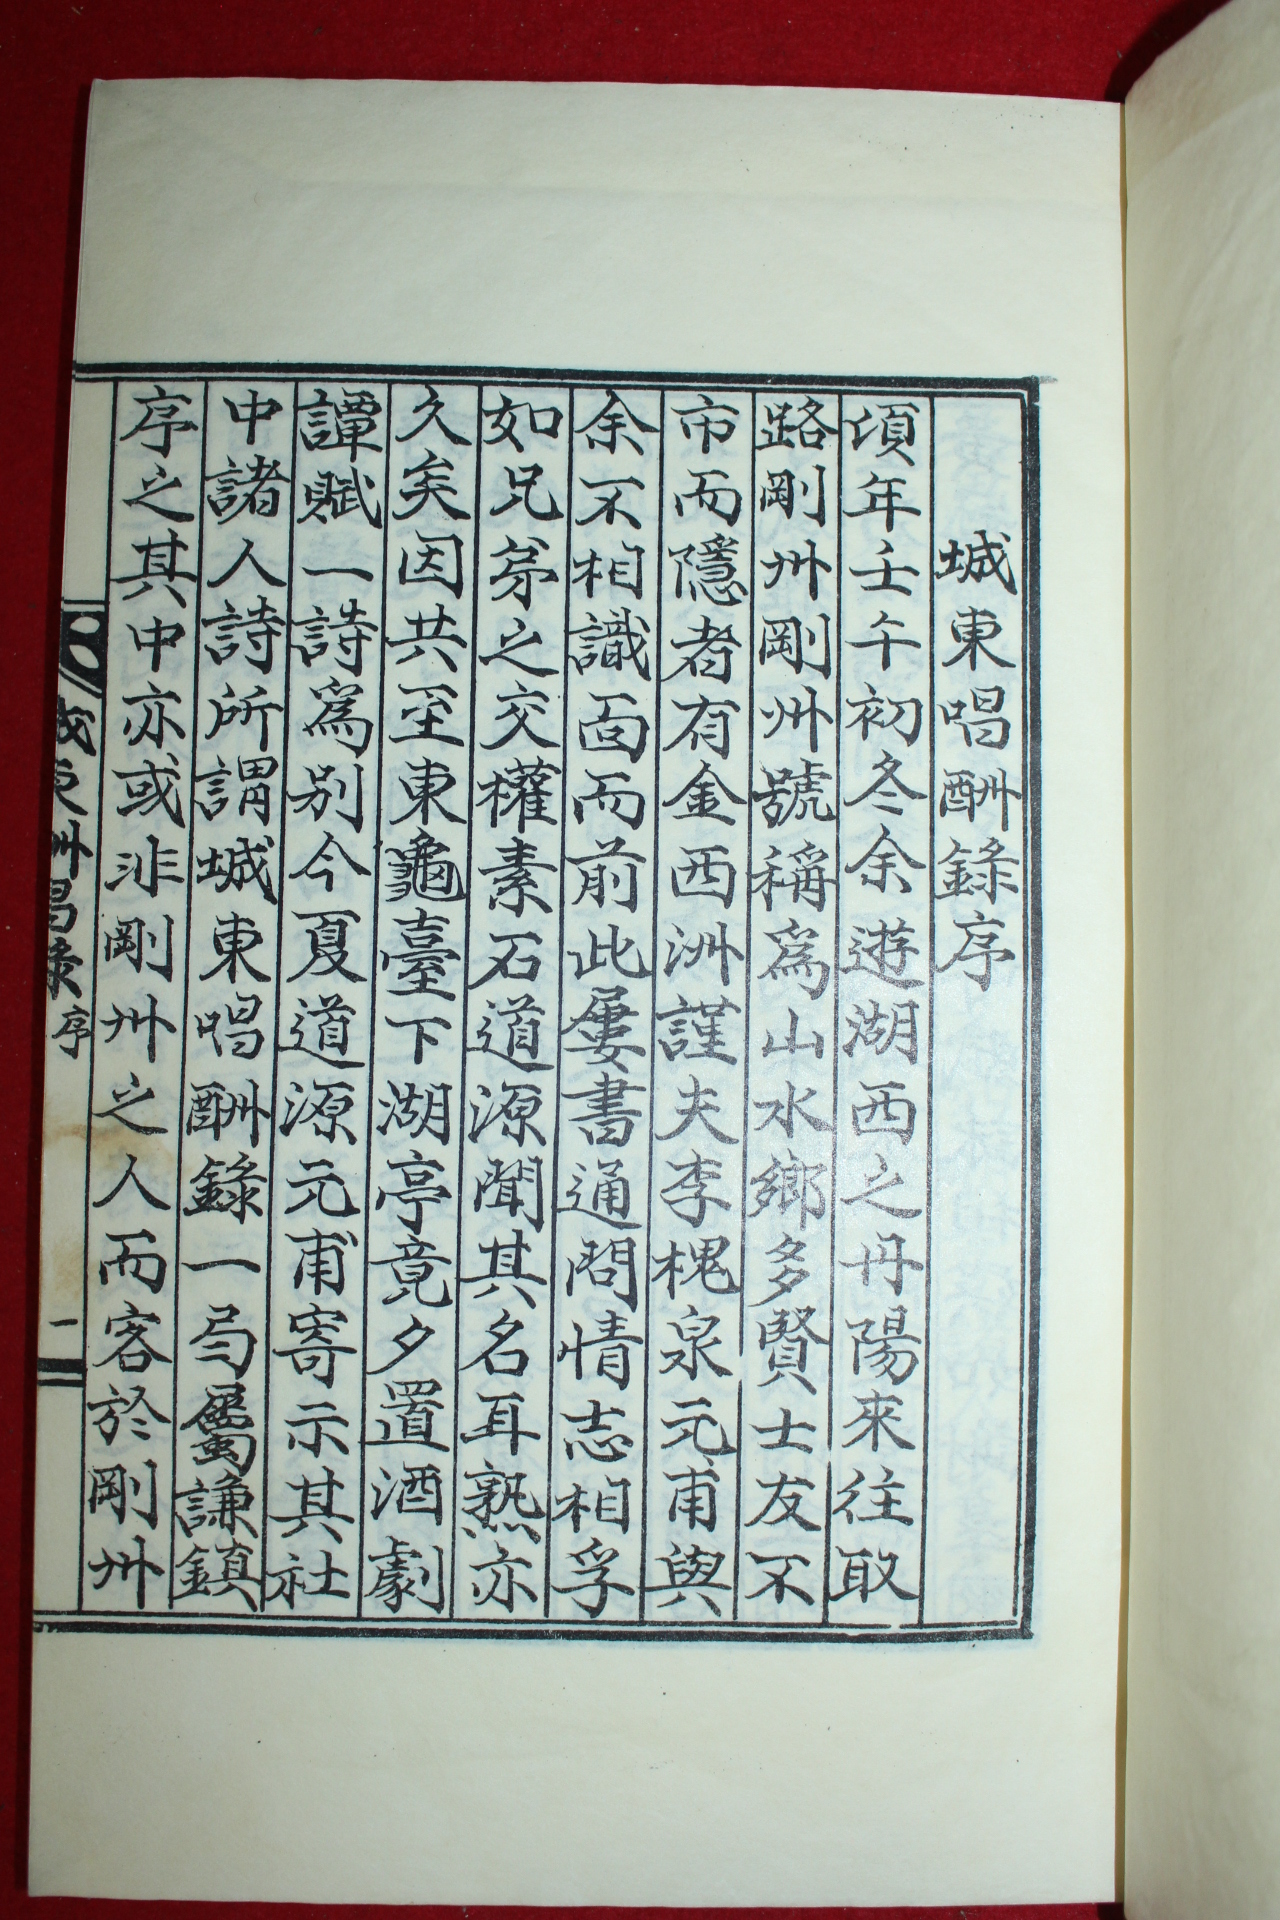 城東唱酬錄序
頃年壬午初冬余遊湖西之丹陽來往取
路剛州剛州號稱爲山水鄉多賢士友不
市而隱者有金西洲謹夫李槐泉元甫與
余不相識面而前此屢書通問情志相孚
如兄弟之交權素石道源聞其名耳熟亦
久矣因共至東龜臺下湖亭竟夕置酒劇
譚賦一詩爲別今夏道源元甫寄示其社
中諸人詩所謂城東唱酬錄一局屬謙鎮
序之其中亦或非剛州之人而客於剛州
序 一